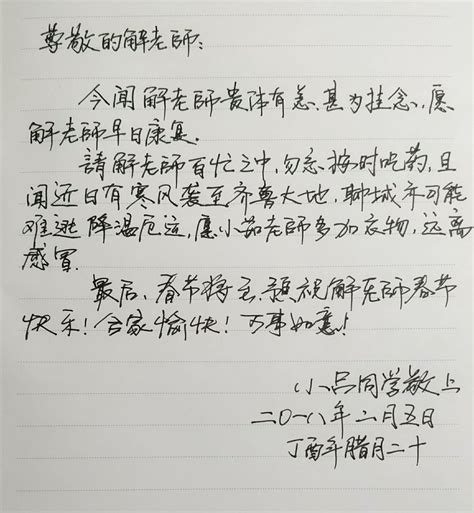 尊敬的解老師:
今闻解老師贵体有恙,甚为挂念,愿
解老師早日康复.
請解老師百忙之中,勿忘按时吃药,且
闻近日有寒风袭至齐鲁大地,聊城亦可能
难逃降温厄运,愿小茹老師多加衣物,远离
感冒.
最后,春节将至,預祝解老師春节
快乐!合家愉快!万事如意!
小吕同学敬上
二〇一八年二月五日
丁酉年腊月二十